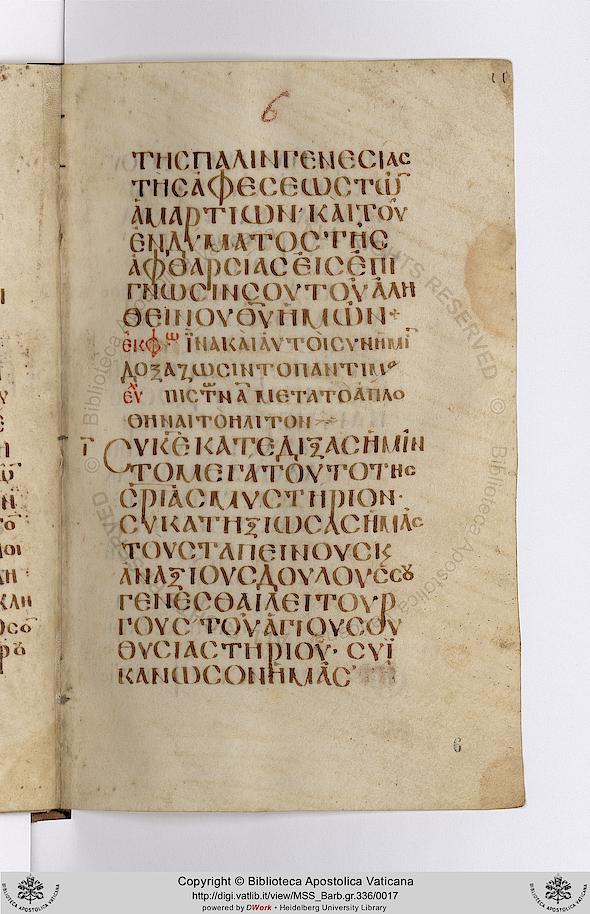 6
ΤΗΣ ΠΑΛΙΝΓΕΝΕΣΙΑΣ
ΤΗΣ ἈΦΕΣΕΩΣ ΤΩ̅
ἉΜΑΡΤΙΩΝ· ΚΑΙ ΤΟΥ
ἘΝΔΥΜΑΤΟΣ ΤΗΣ
ἈΦΘΑΡΣΙΑΣ ΕἸΣ ἘΠΙ
ΓΝΩΣΙΝ ΣΟΥ ΤΟΥ ἈΛΗ
ΘΕΙΝΟΥ Θ̅Υ̅ ἩΜΩΝ +
ἘΚΦΩ ἽΝΑ ΚΑΙ ΑὙΤΟΙ ΣΥΝ ἩΜΙ
ΔΟΞΑΖΩΣΙΝ ΤΟ ΠΑΝΤΙΜΟ
ΕΥ ΠΙΣΤΩΝ Α ΜΕΤΑ ΤΟ ἈΠΛΩ
ΘΗΝΑΙ ΤΟ ἩΛΙΤΟΝ
ΣΥ Κ̅Ε̅ ΚΑΤΕΔΙΞΑΣ ἩΜΙΝ
ΤΟ ΜΕΓΑ ΤΟΥΤΟ ΤΗΣ
Σ̅Ρ̅ΙΑΣ ΜΥΣΤΗΡΙΟΝ·
ΣΥ ΚΑΤΗΞΙΩΣΑΣ ἩΜΑΣ
ΤΟΥΣ ΤΑΠΕΙΝΟΥΣ Κ
ἈΝΑΞΙΟΥΣ ΔΟΥΛΟΥΣ ΣΟΥ
ΓΕΝΕΣΘΑΙ ΛΕΙΤΟΥΡ
ΓΟΥΣ ΤΟΥ ἉΓΙΟΥ ΣΟΥ
ΘΥΣΙΑΣΤΗΡΙΟΥ· ΣΥ Ἱ
ΚΑΝΩΣΟΝ ἩΜΑΣ
6
Copyright © Biblioteca Apostolica Vaticana
http://digi.vatlib.it/view/MSS_Barb.gr.336/0017
powered by DWork • Heidelberg University Library